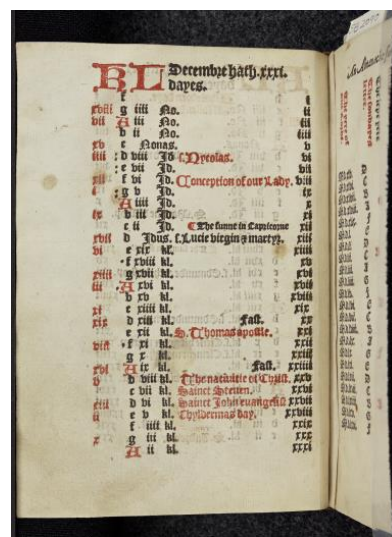 KL Decembre hath .xxxi.
dayes.
f i
xviii g iiii No. ii
vii A iii No. iii
b ii No. iiii
xv c Nonas. v
iiii d viii Id s. Nycolas. vi
e vii Id. vii
xii f vi Id. Conception of our Lady. viii
i g v Id. ix
A iiii Id. x
ix b iii Id. xi
c ii Id. The sunne in Capricorne xii
xvii d Idus. s. Lucie virgin & martyr. xiii
vi e xix kl. xiiii
f xviii kl. xv
xiiii g xvii kl. xvi
iii A xvi kl. xvii
b xv kl. xviii
xi c xiiii kl. xix
xix d xiii kl. Fast. xx
e xii kl. S. Thomas apostle. xxi
viii f xi kl. xxii
g x kl. xxiii
xvi A ix kl. Fast. xxiiii
v b viii kl. The nativitie of Christ. xxv
c vii kl. Sainct Steven. xxvi
xiii d vi kl. Sainct John euangelist xxvii
ii e v kl. Chyldermas day. xxviii
f iiii kl. xxix
x g iii kl. xxx
A ii kl. xxxi